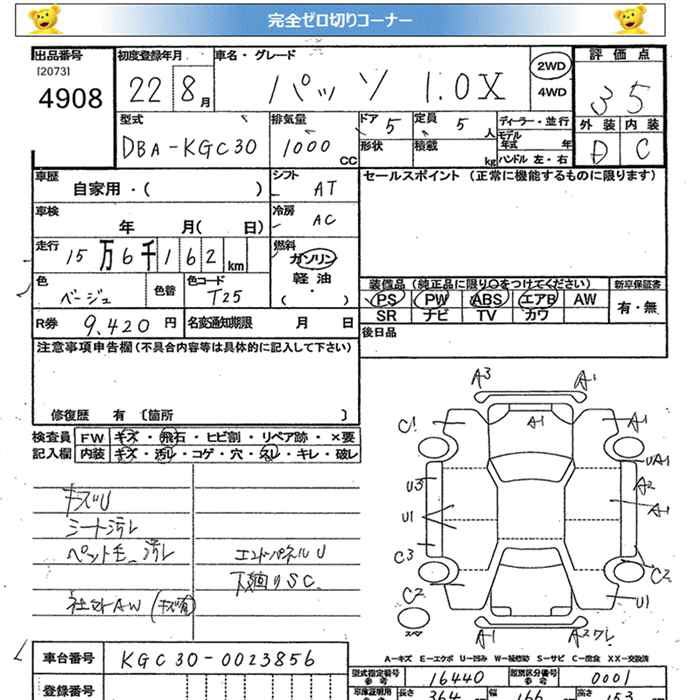 完全ゼロ切りコーナー
出品番号 初度登録年月 車名・グレード 評価点
[2073] 4908 22 8月 パッソ 1.0X 2WD 4WD 3.5
外装 内装
D C
型式 排気量 ドア 5 定員 5人 ディーラー・並行
DBA-KGC30 1000cc 形状 積載 kg モデル年式 年
ハンドル 左・右
車歴 自家用・( ) シフト AT セールスポイント (正常に機能するものに限ります)
車検 年 月( 日) 冷房 AC
走行 15万6千162km 燃料 ガソリン
軽油
( ・ )
色 ベージュ 色替 色コード T25
装備品 (純正品に限り○をつけてください) 新車保証書
PS PW ABS エアB AW 有・無
SR ナビ TV カワ
R券 9,420円 名変通知期限 月 日 後日品
注意事項申告欄(不具合内容等は具体的に記入して下さい)
修復歴 有 〔箇所 〕
検査員 FW キズ・飛石・ヒビ割・リペア跡・×要
記入欄 内装 キズ・汚レ・コゲ・穴・スレ・キレ・破レ
キズU
シート汚レ
ペット毛 汚レ エンドパネルU
下廻りSC.
社外AW (キズ有)
A3 A1
C1 A1 A1
UA1
U3 A2
U1 A1
C3 C2
C2 U1
スペア A1
A-キズ E-エクボ U-凹み W-補修跡 S-サビ C-腐食 XX-交換済
車台番号 KGC30-0023856
型式指定番号 16440 類別区分番号 0001
登録番号 長さ 364 幅 166 高さ 153